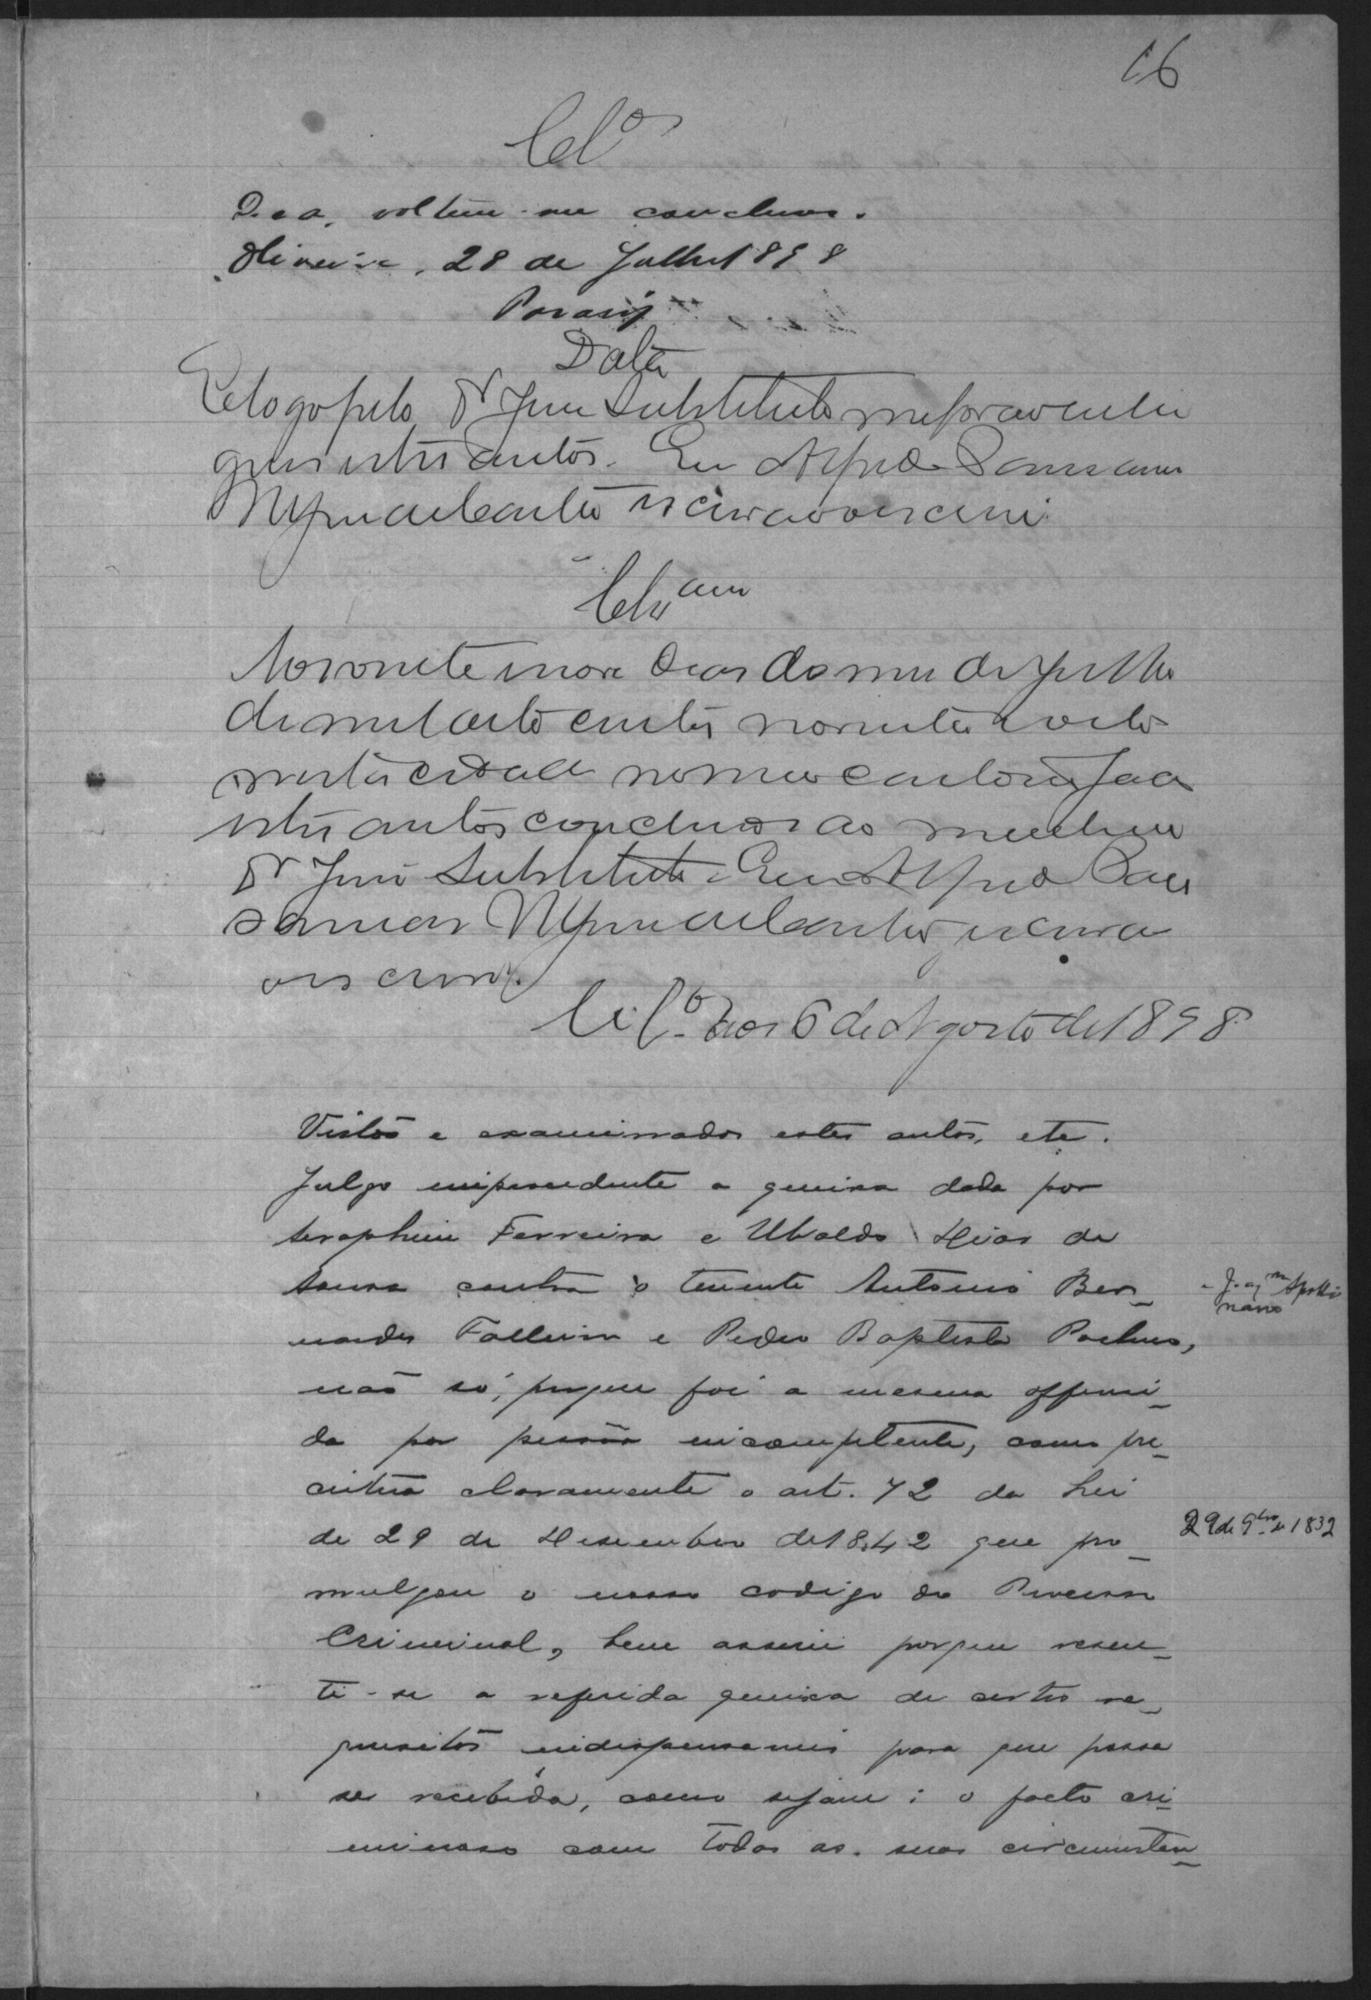 16
Cl.os
D. e a. voltem-me conclusos.
Oliveira, 28 de Julho 1898
Data
E logo pelo Dr Juiz Substituto me foram entre
gues estes autos. Eu Alfredo
escrivão o escrevi.
Clsam
Aos vinte nove dias do mes de Julho
de mil oito centos noventa e oito
nesta cidade no meu cartorio faço
estes autos conclusos ao meritissimo
Dr Juiz Substituto. Eu Alfredo
escri
vão o escrevi.
aos 6 de Agosto de 1898
Vistos e examinados estes autos, etc.
Julgo improcedente a queixa dada por
Seraphim Ferreira e Ubaldo Dias de
Sousa contra o tenente Antonio Ber-
nardes e Pedro Baptista
não só, porque foi a mesma offereci-
da por pessôas incompetente, como pre-
ceitúa claramente o art. 72 da Lei
de 29 de Desembro de 1842 que pro-
mulgou o nosso codigo do Processo
Criminal, bem assim porque resen-
te-se a referida queixa de certos re-
quesitos indispensaveis para que possa
ser recebida, como sejam: o facto cri-
minoso com todas as suas circumstan-
e Joaqm Apolli
nario
29 de 9bro de 1832